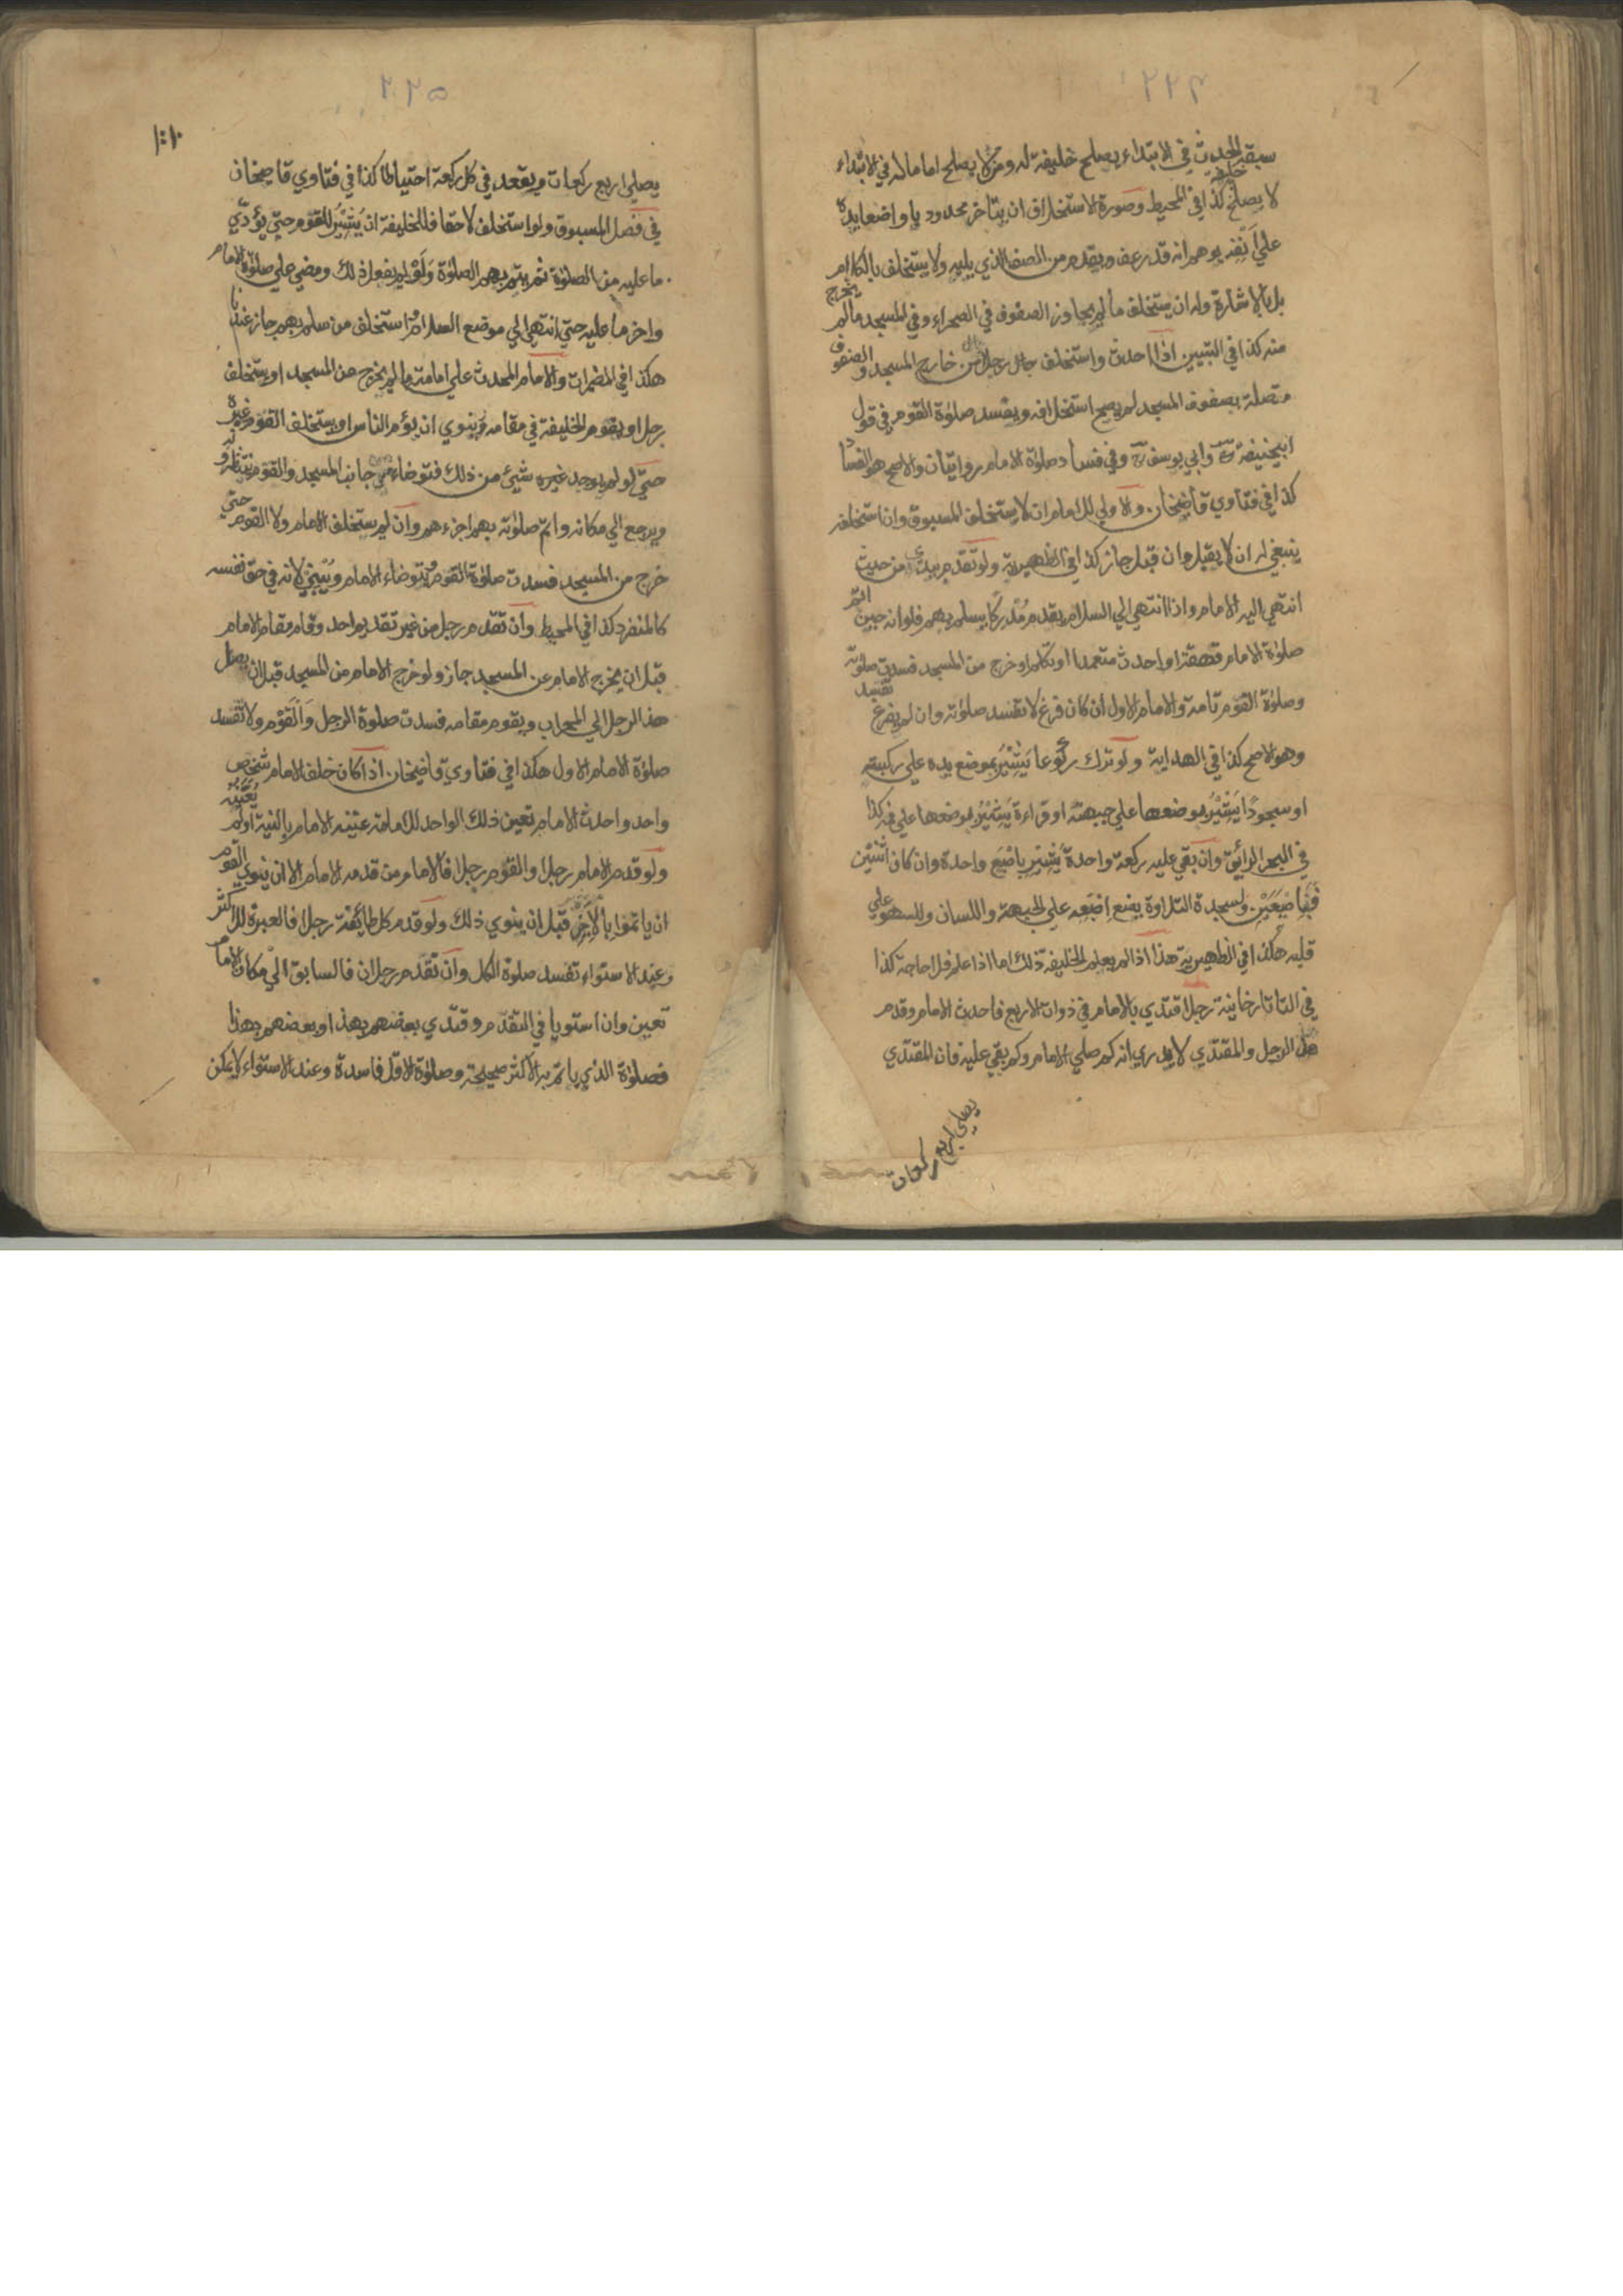 ٢٢٤
سبقه الحدث في الابتداء يصلح خليفة له ومن لا يصلح اماما له في الابتداء
لا يصلح خليفة كذا في المحيط وصورة الاستخلاف ان يتاخر محدودبا واضعا يده
على انفه يوهم انه قد رعف ويقدم من الصف الذي يليه ولا يستخلف بالكلام
بل بالاشارة وله ان يستخلف ما لم يجاوز الصفوف في الصحراء وفي المسجد ما لم يخرج
منه كذا في التبيين اذا احدث واستخلف رجلا من خارج المسجد والصفوف
متصلة بصفوف المسجد لم يصح استخلافه ويفسد صلوة القوم في قول
ابيحنيفة وابي يوسف وفي فساد صلوة الامام روايتان والاصح هو الفساد
كذا في فتاوي قاضيخان والاولي للامام ان لا يستخلف المسبوق وان استخلفه
ينبغي له ان لا يقبل وان قبل جاز كذا في الظهيرية ولو تقدم يبتدئ من حيث
انتهي اليه الامام واذا انتهي الي السلام يقدم مدركا يسلم بهم فلو انه حين اتم
صلوة الامام قهقه او احدث متعمدا او تكلم او خرج من المسجد فسدت صلوته
وصلوة القوم تامة والامام الاول ان كان فرغ لا تفسد صلوته وان لم يفرغ تفسد
وهو الاصح كذا في الهداية ولو ترك ركوعا يشير بوضع يده علي ركبته
او سجودا يشير بوضعها علي جبهته او قراءة يشير بوضعها علي فمه كذا
في البحر الرائق وان بقي عليه ركعة واحدة يشير باصبع واحدة وان كان اثنين
فباصبعين ولسجدة التلاوة يضع اصبعه علي الجبهة واللسان وللسهو علي
قلبه هكذا في الظهيرية هذا اذا لم يعلم الخليفة ذلك اما اذا علم فلا حاجة كذا
في التاتارخانية رجل اقتدي بالامام في ذوات الاربع فاحدث الامام وقدم
هذا الرجل والمقتدي لا يدري انه كم صلي الامام وكم بقي عليه فان المقتدي
يصلي اربع ركعات
٢٢٥
يصلي اربع ركعات ويقعد في كل ركعة احتياطا كذا في فتاوي قاضيخان
في فصل المسبوق ولو استخلف لاحقا فللخليفة ان يشير للقوم حتي يؤدي
ما عليه من الصلوة ثم يتم بهم الصلوة ولو لم يفعل ذلك ومضي علي صلوة الامام
واخر ما عليه حتي انتهي الي موضع السلام واستخلف من سلم بهم جاز عندنا
هكذا في المضمرات والامام المحدث علي امامته ما لم يخرج من المسجد او يستخلف
رجلا ويقوم الخليفة في مقامه وينوي ان يؤم الناس او يستخلف القوم غيره
حتي لو لم يوجد غيره شيئ من ذلك فتوضاء من جانب المسجد والقوم منتظروه
ويرجع الي مكانه واتم صلوته بهم اجزءهم وان لم يستخلف الامام ولا القوم حتي
خرج من المسجد فسدت صلوة القوم ويتوضاء الامام ويبني لانه في حق نفسه
كالمنفرد كذا في المحيط وان تقدم رجل من غير تقديم احد وقام مقام الامام
قبل ان يخرج الامام عن المسجد جاز ولو خرج الامام من المسجد قبل ان يصل
هذا الرجل الي المحراب ويقوم مقامه فسدت صلوة الرجل والقوم ولا تفسد
صلوة الامام الاول هكذا في فتاوي قاضيخان اذا كان خلف الامام شخص
واحد واحدث الامام تعين ذلك الواحد للامامة عينه الامام بالنية او لم يعينه
ولو قدم الامام رجلا والقوم رجلا فالامام من قدمه الامام الا ان ينوي القوم
ان ياتموا بالاخر قبل ان ينوي ذلك ولو قدم كل طائفة رجلا فالعبرة للاكثر
وعند الاستواء تفسد صلوة الكل وان تقدم رجلان فالسابق الي مكان الامام
تعين وان استويا في التقدم وقتدي بعضهم بهذا وبعضهم بهذا
فصلوة الذي ياتم به الاكثر صحيحة وصلوة الاقل فاسدة وعند الاستواء لا يمكن